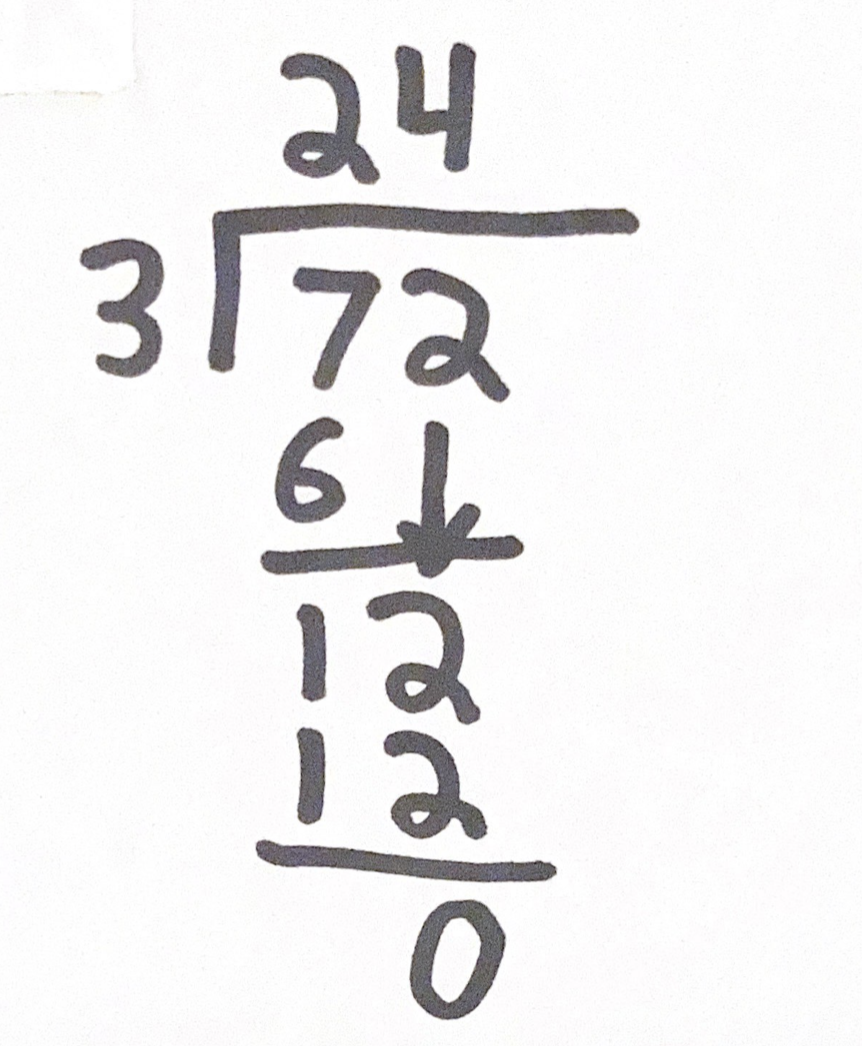 24
3 72
6
12
12
0